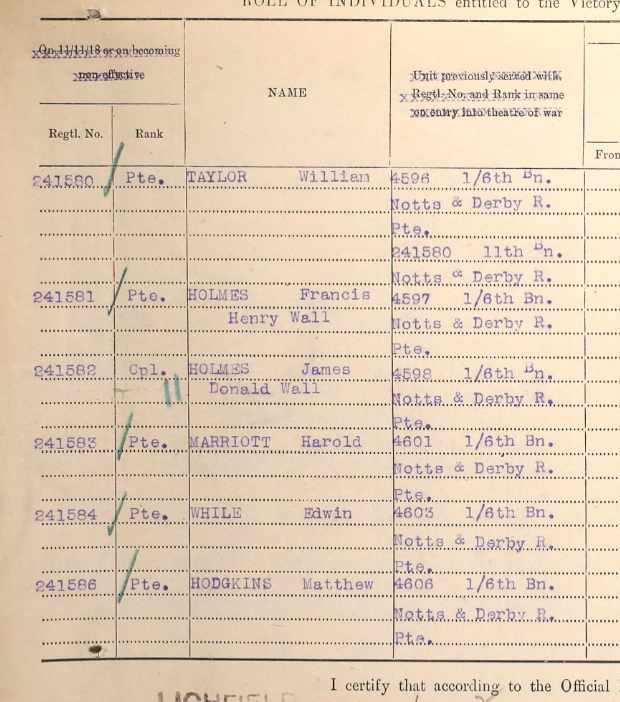 ROLL OF INDIVIDUALS entitled to the Victory
On 11/11/18 or on becoming
non-effective
Regtl. No. Rank
NAME
Unit previously served with,
Regtl. No. and Rank in same
on entry into theatre of war
From
241580 Pte. TAYLOR William 4596 1/6th Bn.
Notts & Derby R.
Pte.
241580 11th Bn.
Notts & Derby R.
241581 Pte. HOLMES Francis 4597 1/6th Bn.
Henry Wall Notts & Derby R.
Pte.
241582 Cpl. HOLMES James 4598 1/6th Bn.
Donald Wall Notts & Derby R.
Pte.
241583 Pte. MARRIOTT Harold 4601 1/6th Bn.
Notts & Derby R.
Pte.
241584 Pte. WHILE Edwin 4603 1/6th Bn.
Notts & Derby R.
Pte.
241586 Pte. HODGKINS Matthew 4606 1/6th Bn.
Notts & Derby R.
Pte.
I certify that according to the Official
LICHFIELD